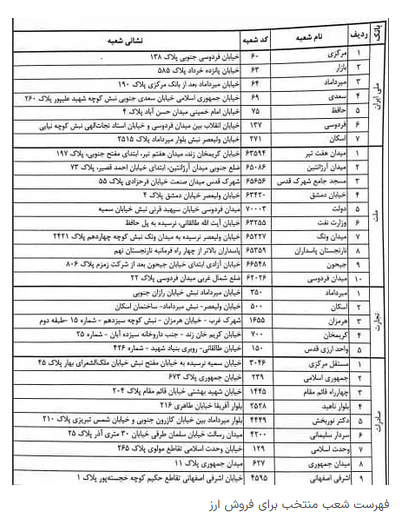 بانک ردیف نام شعبه کد شعبه نشانی شعبه
ملی ایران
۱ مرکزی ۶۰ خیابان فردوسی جنوبی پلاک ۱۳۸
۲ بازار ۶۳ خیابان پانزده خرداد پلاک ۵۸۵
۳ میرداماد ۶۴ خیابان میرداماد بعد از بانک مرکزی پلاک ۱۹۰
۴ سعدی ۶۹ خیابان جمهوری اسلامی خیابان سعدی جنوبی نبش کوچه شهید علیپور پلاک ۲۶۰
۵ حافظ ۷۵ خیابان امام خمینی میدان حسن آباد پلاک ۴
۶ فردوسی ۱۳۷ خیابان انقلاب بین میدان فردوسی و خیابان استاد نجات‌الهی نبش کوچه نیایی
۷ اسکان ۲۷۱ خیابان ولیعصر نبش بلوار میرداماد پلاک ۲۵۱۵
ملت
۱ میدان هفت تیر ۶۳۵۹۴ خیابان کریمخان زند، میدان هفتم تیر، ابتدای مفتح جنوبی، پلاک ۱۹۷
۲ میدان آرژانتین ۶۵۰۸۶ ضلع جنوبی میدان آرژانتین، ابتدای خیابان احمد قصیر، پلاک ۷۳
۳ مسجد جامع شهرک قدس ۶۵۶۵۶ شهرک قدس میدان صنعت خیابان فرحزادی پلاک ۵۵
۴ خیابان دمشق ۶۳۴۲۰ خیابان ولیعصر خیابان دمشق پلاک ۴
۵ دولت ۷۰۰۰۳ میدان فردوسی خیابان سپهبد قرنی نبش خیابان سمیه
۶ وزارت نفت ۶۳۲۵۵ خیابان آیت الله طالقانی، نرسیده به پل حافظ
۷ میدان ونک ۶۵۲۲۷ خیابان ولیعصر نرسیده به میدان ونک نبش کوچه چهاردهم پلاک ۲۴۲۱
۸ نارنجستان پاسداران ۶۵۳۵۹ پاسداران بالاتر از چهار راه فرمانیه نارنجستان نهم
۹ جیحون ۶۶۵۴۸ خیابان آزادی ابتدای خیابان جیحون بعد از شرکت زمزم پلاک ۸۰۶
۱۰ میدان فردوسی ۶۲۰۲۶ ضلع شمال غربی میدان فردوسی پلاک ۲۲
تجارت
۱ میرداماد ۳۵۰ خیابان میرداماد نبش خیابان رازان جنوبی
۲ اسکان ۵۰۰ خیابان ولیعصر- نبش میرداماد- ساختمان اسکان
۳ هرمزان ۱۶۵۵ شهرک غرب - خیابان هرمزان - نبش کوچه سیزدهم - شماره ۱۵ -طبقه دوم
۴ کریمخان ۷۰۰ خیابان کریم خان زند - جنب داروخانه سیزده آبان - شماره ۲۵
۵ واحد ارزی قدس ۱۵۰ خیابان طالقانی- روبری بنیاد شهید - شماره ۴۲۶
صادرات
۱ مستقل مرکزی ۳۰۴۶ خیابان سمیه نرسیده به خیابان مفتح نبش خیابان ملک‌الشعرای بهار پلاک ۴۵
۲ جمهوری اسلامی ۲۳۹ خیابان جمهوری پلاک ۶۷۳
۳ چهارراه قائم مقام ۱۴۴۵ خیابان شهید بهشتی خیابان قائم مقام پلاک ۲۰۴
۴ بلوار ناهید ۲۵۲۸ بلوار آفریقا خیابان طاهری ۲۱۶
۵ دکتر نوربخش ۴۴۴۹ بلوار میرداماد بین خیابان کازرون جنوبی و خیابان شمس تبریزی پلاک ۲۱۰
۶ سردار سلیمانی ۴۲۰۰ میدان رسالت خیابان سلمان طرقی خیابان ۳۰ متری آذر پلاک ۲۵
۷ وحدت اسلامی ۱۲۹ خیابان وحدت اسلامی تقاطع مولوی پلاک ۲۶۵
۸ میدان جمهوری ۶۲۷ میدان جمهوری پلاک ۱۱
۹ اشرفی اصفهانی ۴۵۹۵ خیابان اشرفی اصفهانی تقاطع حکیم کوچه خجسته‌پور پلاک ۱
فهرست شعب منتخب برای فروش ارز